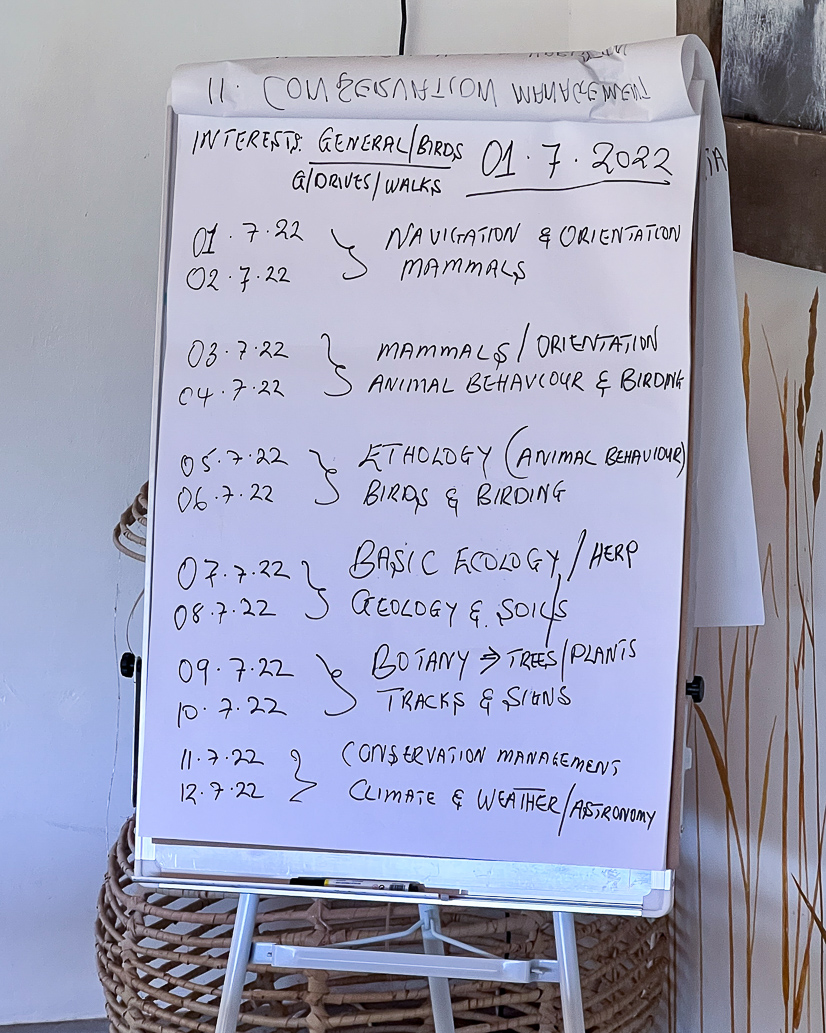 11. CONSERVATION MANAGEMENT
INTERESTS: GENERAL/BIRDS 01.7.2022
G/DRIVES/WALKS
01.7.22 } NAVIGATION & ORIENTATION
02.7.22 MAMMALS
03.7.22 } MAMMALS/ORIENTATION
04.7.22 ANIMAL BEHAVIOUR & BIRDING
05.7.22 } ETHOLOGY (ANIMAL BEHAVIOUR)
06.7.22 BIRDS & BIRDING
07.7.22 } BASIC ECOLOGY/HERP
08.7.22 GEOLOGY & SOILS
09.7.22 } BOTANY → TREES/PLANTS
10.7.22 TRACKS & SIGNS
11.7.22 } CONSERVATION MANAGEMENT
12.7.22 CLIMATE & WEATHER/ASTRONOMY